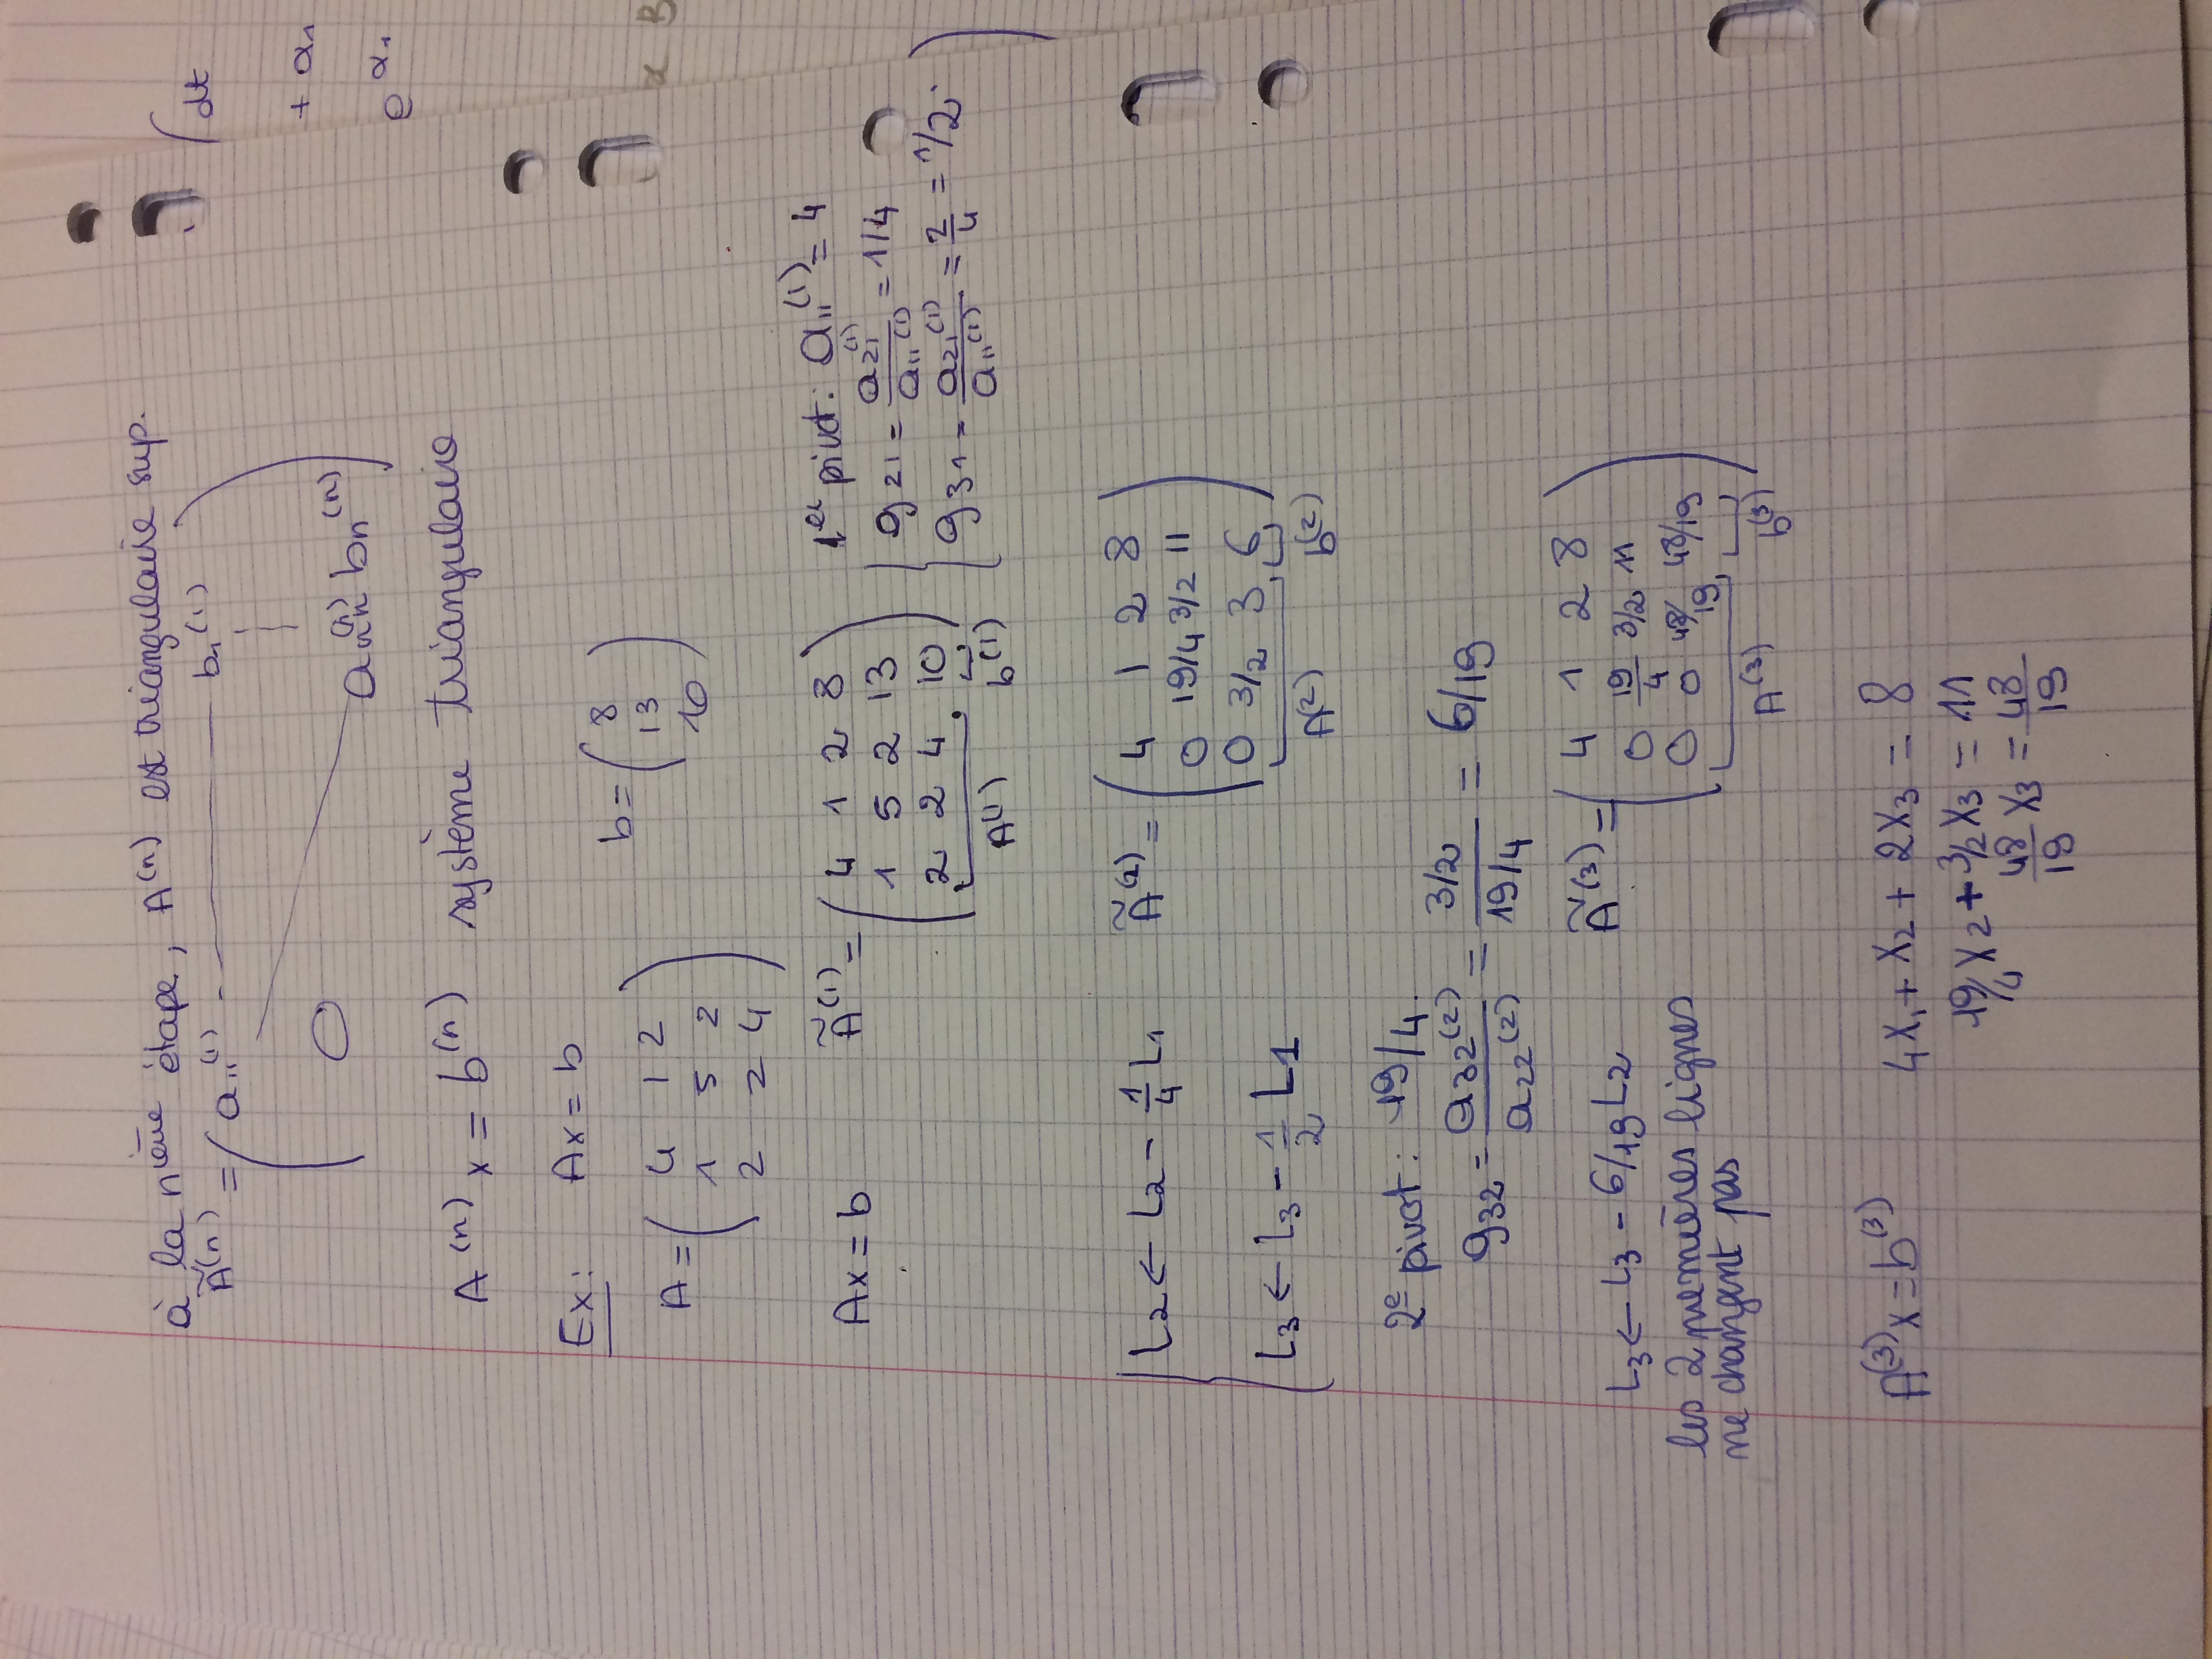 à la nième étape, A^(n) est triangulaire sup.
Ã^(n) = ( a11^(1) — b1^(1)
0
ann^(n) bn^(n) )
A^(n) x = b^(n) système triangulaire
Ex: Ax = b
A = ( 4 1 2
1 5 2
2 2 4 )
b = ( 8
13
10 )
Ax = b
Ã^(1) = ( 4 1 2 8
1 5 2 13
2 2 4 10 )
A^(1) b^(1)
1er pivot: a11^(1) = 4
g21 = a21^(1) / a11^(1) = 1/4
g31 = a21^(1) / a11^(1) = 2/4 = 1/2
L2 ← L2 - 1/4 L1
L3 ← L3 - 1/2 L1
Ã^(2) = ( 4 1 2 8
0 19/4 3/2 11
0 3/2 3 6 )
A^(2) b^(2)
2e pivot: 19/4
g32 = a32^(2) / a22^(2) = 3/2 / 19/4 = 6/19
L3 ← L3 - 6/19 L2
les 2 premières lignes
ne changent pas
Ã^(3) = ( 4 1 2 8
0 19/4 3/2 11
0 0 48/19 48/19 )
A^(3) b^(3)
A^(3) x = b^(3)
4x1 + x2 + 2x3 = 8
19/4 x2 + 3/2 x3 = 11
48/19 x3 = 48/19
∫ dt
+ α1
e^α1
B